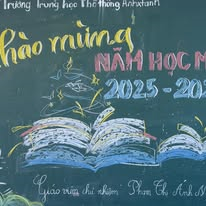 Trường Trung học Phổ thông
chào mừng
NĂM HỌC M
2025 - 20
Giáo viên chủ nhiệm: Phạm Thị Ánh N